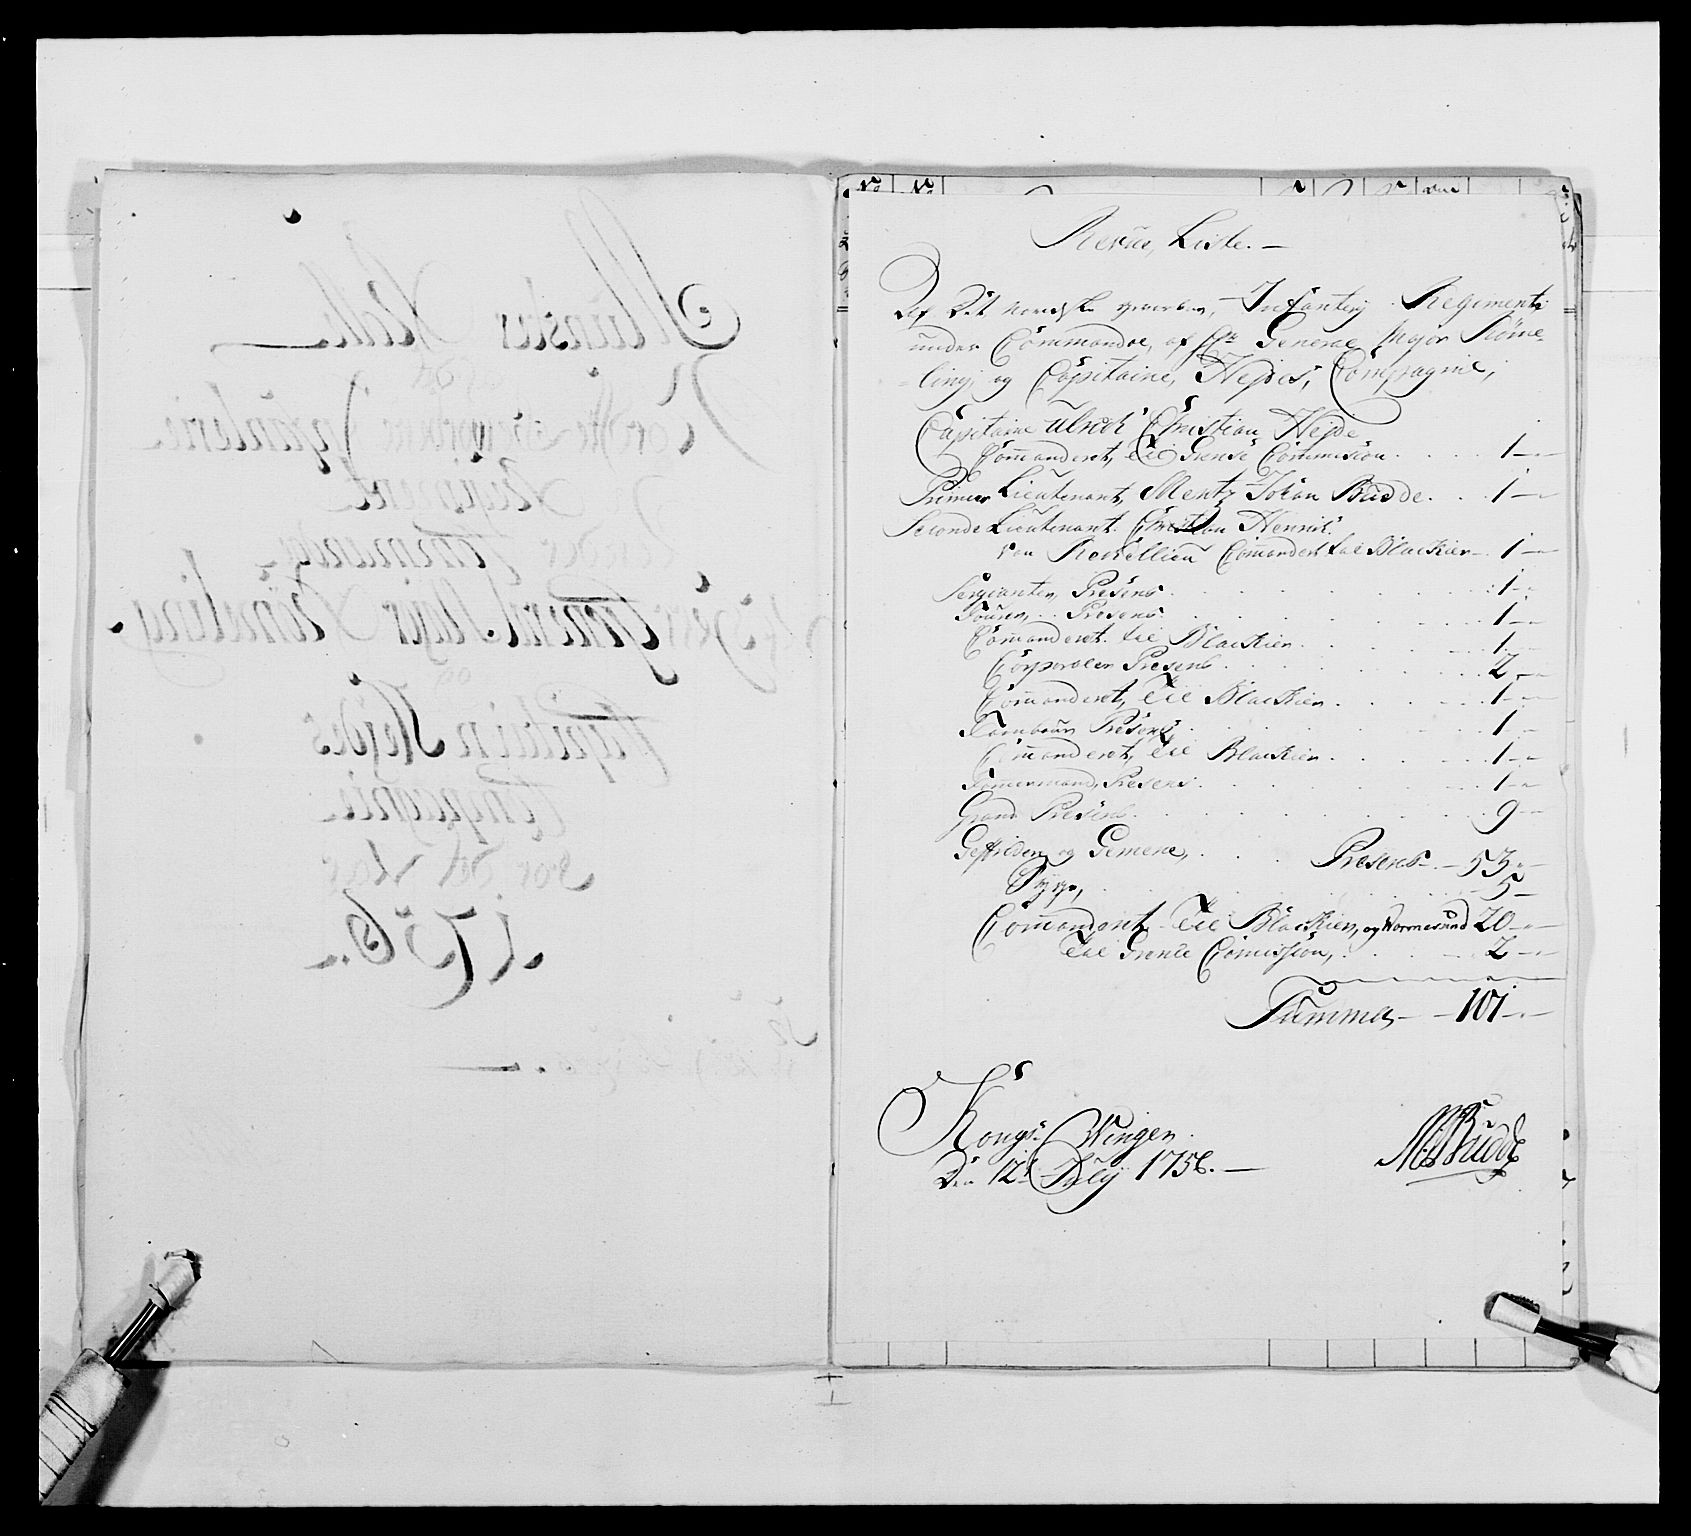 Münster Rolle
Af det
Norske Geworbne Infanterie
Regiment
Under Commando
Af Herr General Major Römeling
og
Capitain Hejdes
Compagnie
for det Aar
1756.
Revüe, Liste.
Af Det norske gevorben, Infanterj Regiment
under Commandoe, af Hr General Major Röme-
ling; og Capitaine, Hejdes, Compagnie,
Capitaine Ulrich Christian Hejde
Commanderet, til Grense Commision . . . . 1
Primier Lieutenant, Mentz Johan Budde . . . 1
Seconde Lieutenant Christian Hennis
von Commandert til Blackier 1
Sergianter Presens . . . 1
Fourer, Presens . . . 1
Commanderet til Blackier . . . 1
Corporaler Presens . . . 2
Commanderet, til Blackier . . . 1
Tambour Presens . . . 1
Commanderet, til Blackier . . . 1
Tömermand, Presens . . . 1
Grand Presens . . . 9
Geffreider og Gemene, . . . Presens 53
Syge, . . . 5
Commandert til Blackier, og Wormesund 20
til Grense Comission, . . . 2
Summa 101
Kongs Wingen
Den 12t July 1756.
MJBudde